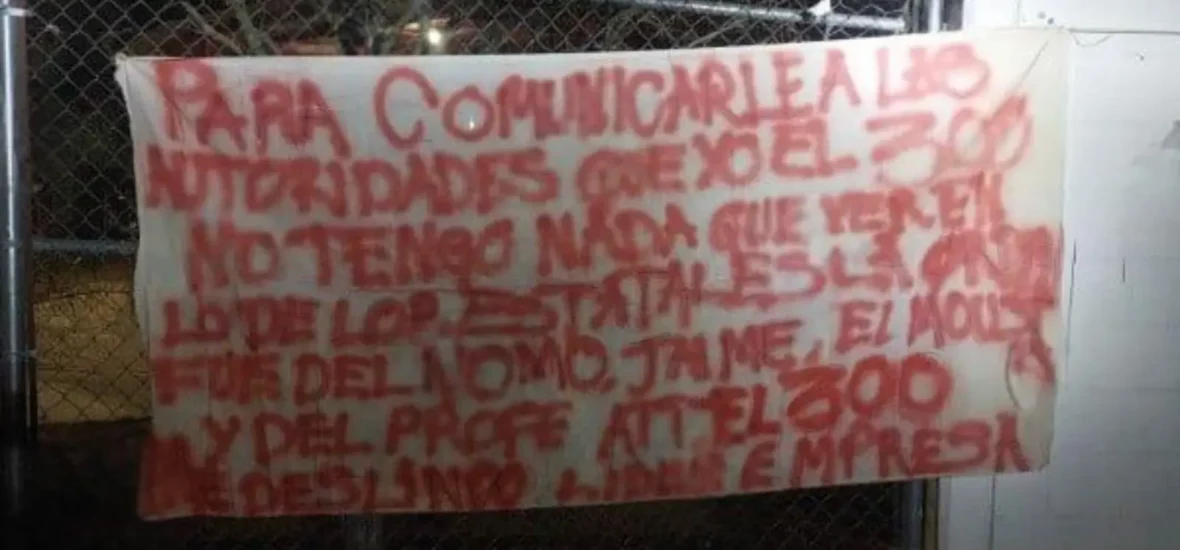 PARA COMUNICARLE A LAS
AUTORIDADES QUE YO EL 300
NO TENGO NADA QUE VER EN
LO DE LOS ESTATALES LA ONDA
FUE DEL NOMO, JAIME, EL
Y DEL PROFE ATT. EL 300
ME DESLINDO LIDER E EMPRESA